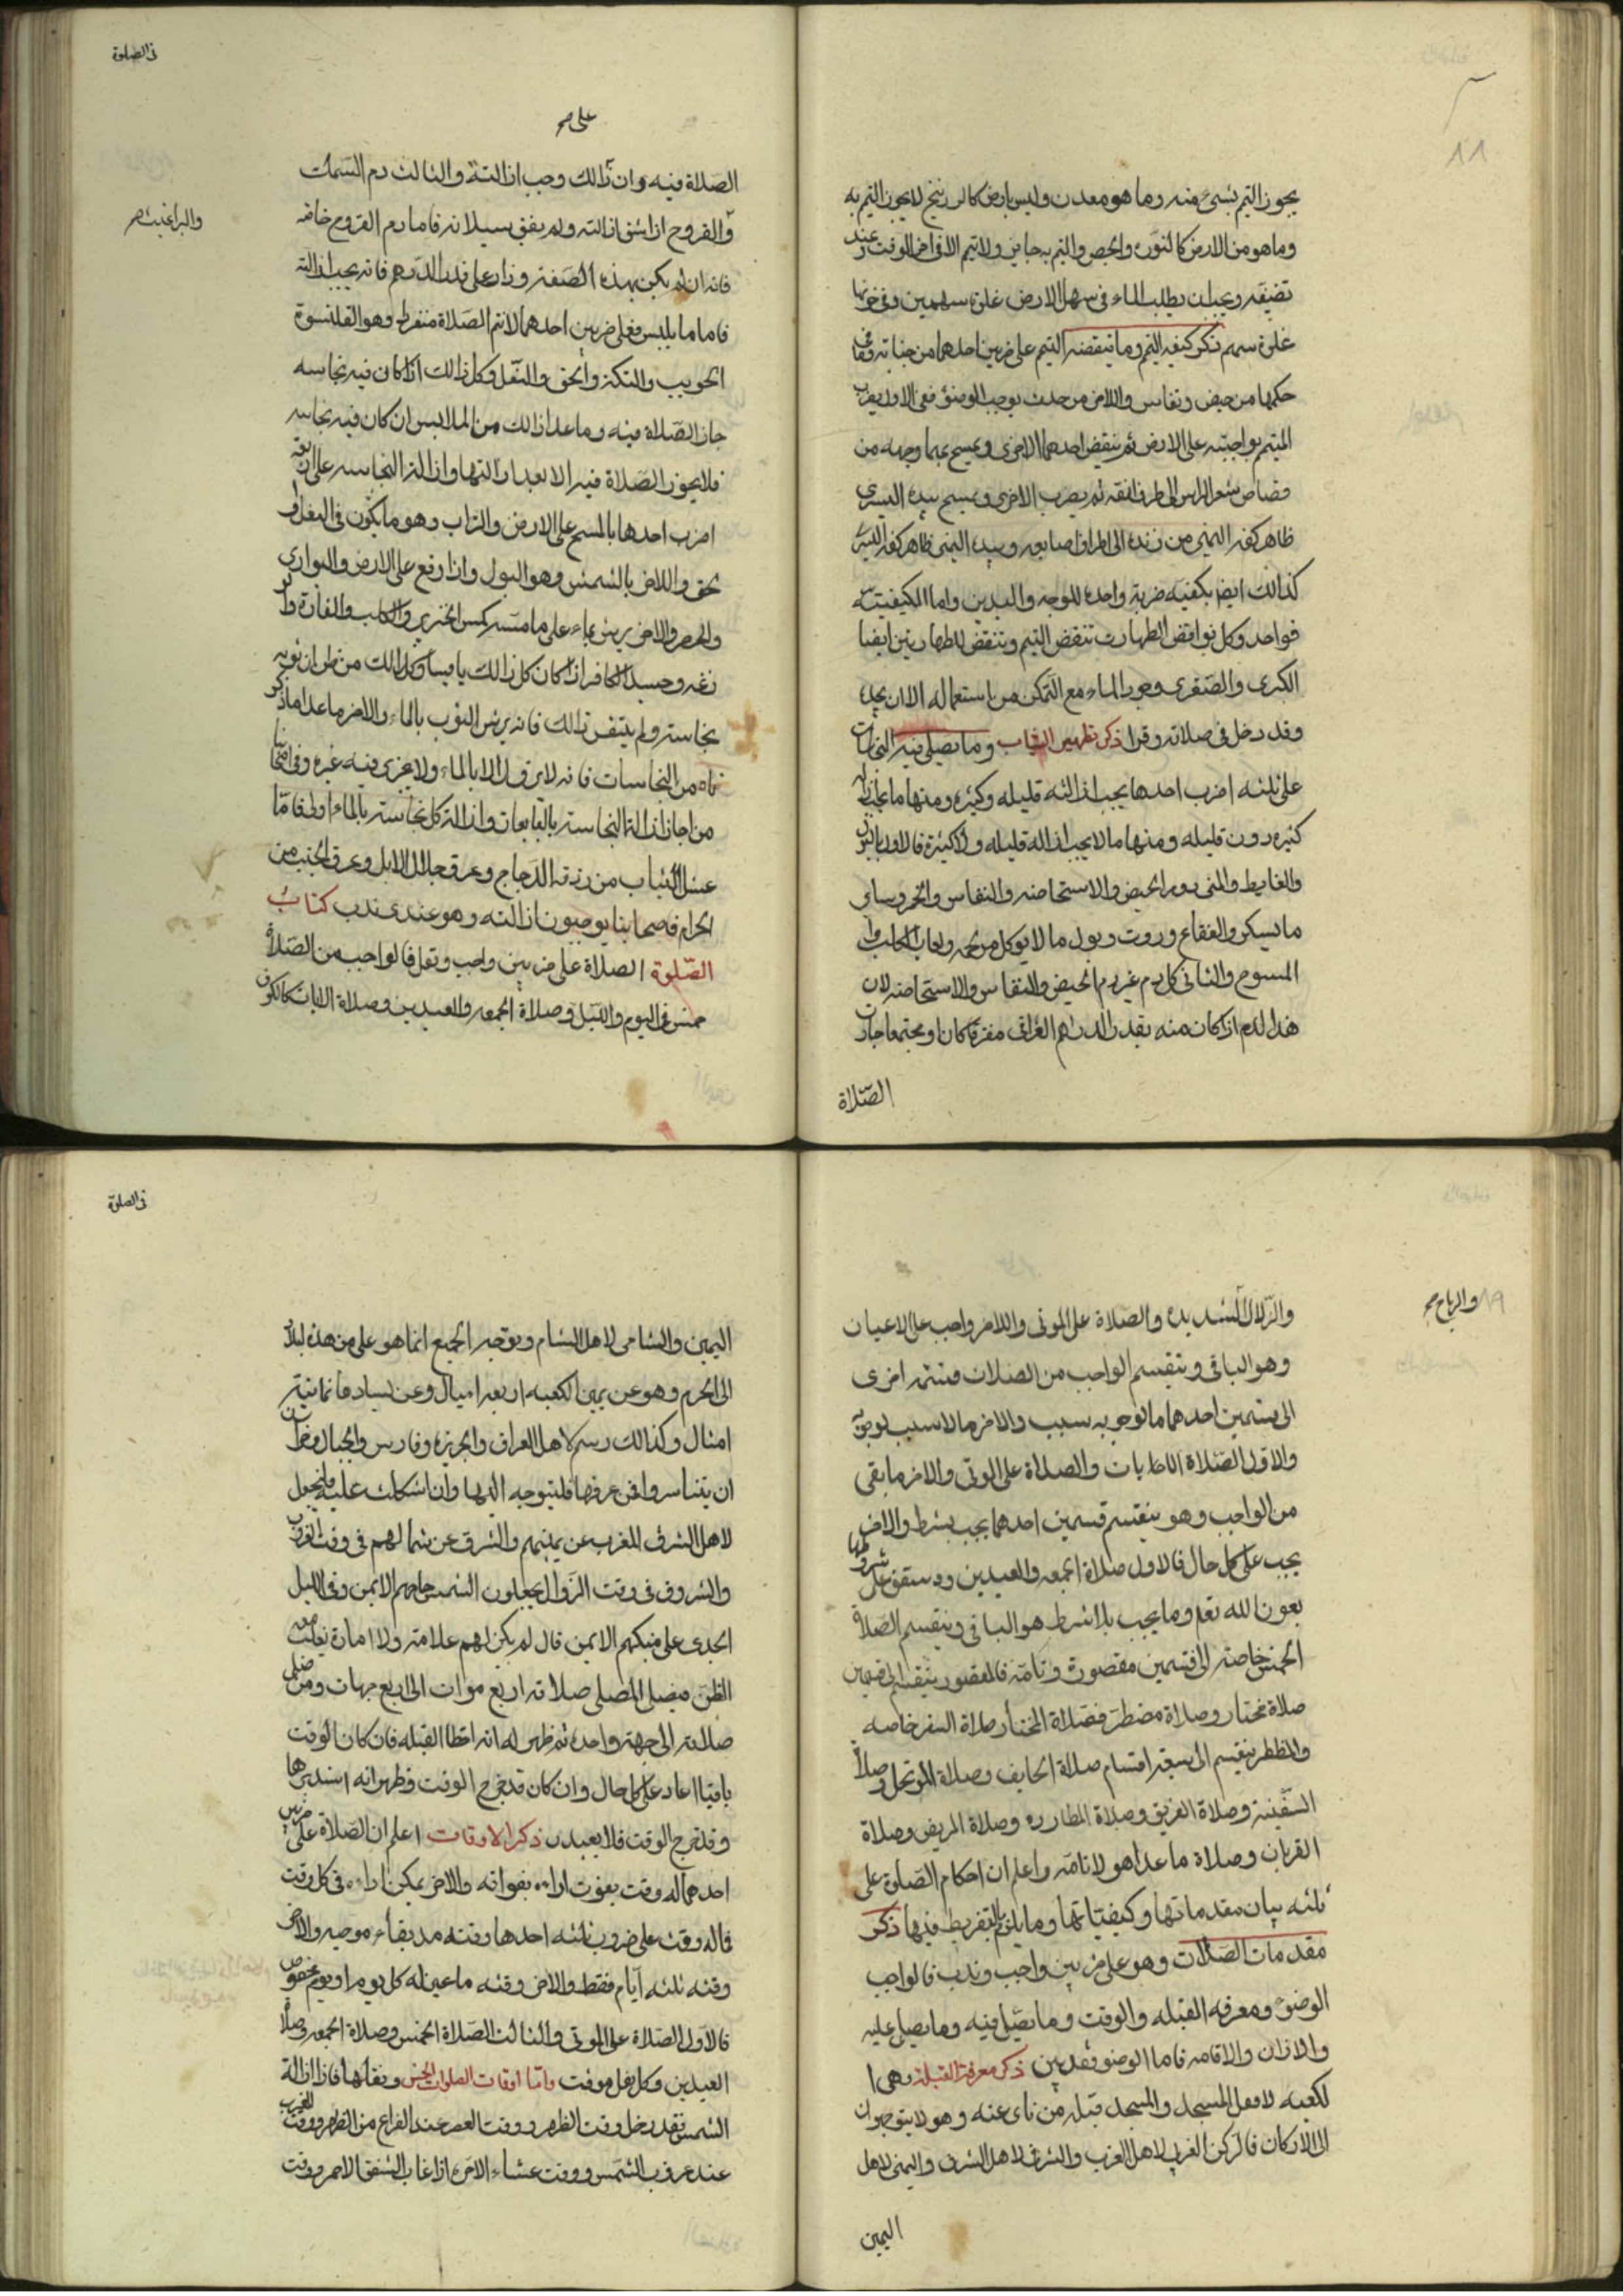 ٨٨
يجوز التيمم بشىء منه وما هو معدن وليس بارض كالزرنيخ لا يجوز التيمم به
وما هو من الارض كالنورة والجص والتيمم به جايز ولا تيمم الا في اخر الوقت وعند
تضيقه ويجب ان يطلب الماء في سهل الارض غلوة سهمين وفي حزنها
غلوة سهم ذكر كيفيه التيمم وما ينقضه التيمم على ضربين احدهما من جنابة وما في
حكمها من حيض ونفاس والاخر من حدث يوجب الوضوء ففى الاول يضرب
المتيمم براحتيه على الارض ثم ينفض احدهما الاخرى ويمسح بهما وجهه من
قصاص شعر الراس الى طرف انفه ثم يضرب الاخرى ويمسح بيده اليسرى
ظاهر كفه اليمنى من زنده الى اطراف اصابعه وبيده اليمنى ظاهر كفه اليسرى
كذالك ايضا بكفيه ضربة واحدة للوجه واليدين واما الكيفيته
فواحد وكل نواقض الطهارت تنقض التيمم وتنقض للطهارتين ايضا
الكبرى والصغرى وجود الماء مع التمكن من استعماله الا ان يجده
وقد دخل في صلاته وقرا ذكر تطهير الثياب وما يصلى فيه النجاسات
على ثلثه اضرب احدها يجب ازالته قليله وكثيره ومنها ما يجب ازاله
كثيره دون قليله ومنها ما لا يجب ازالة قليله ولا كثيرة فالاول بالبول
والغايط والمنى ودم الحيض والاستحاضه والنفاس والخمر وساير
ما تسكر والفقاع وروث وبول ما لا يوكل من لحمه ولعاب الكلب وا
المسوخ والثانى كل دم غير دم الحيض والنفاس والاستحاضه لان
هذا لدم اذا كان منه بقدر الدراهم العراقى مفرقا كان او مجتمعا جازت
الصلاة
فى الصلوة
على صح
الصلاة فيه وان زالك وجب ازالتة والثالث دم السمك
والبراغيث صح
والقروح اذا شق ازالته ولم يفق بسيلانه فاما دم القروح خاصه
فانه ان لم يكن بهذه الصفة وزاد على قدر الدرهم فانه يجب ازالته
فاما ما يلبس فعلى ضربين احدهما لا تتم الصلاة منفردا وهو القلنسوة
الجويب والتكة والخف والنعل وكل ذالك اذا كان فيه نجاسه
جاز الصلاة فيه وما عدا ذالك من الملابس ان كان فيه نجاسه
فلا يجوز الصلاة فيه الا بعد ازالتها وازالة النجاسه على اربعة
اضرب احدها بالمسح على الارض والتراب وهو ما يكون فى النعل او
الخف والاخر بالشمس وهو البول واذا وقع على الارض والبوارى
والحصر والاخر يرش بماء على ما مسه كمس الخنزير والكلب والفارة وا
زغه وجسد الكافر اذا كان كل ذالك يابسا وكذالك من ظن ان ثوبه
نجاسة ولم يتيقن ذالك فانه يرش الثوب بالماء والاخر ما عدا ما ذكر
ناه من النجاسات فانه لا يزول الا بالماء ولا يجزى فيه غيره وفى اصحابنا
من اجاز ازالة النجاسة بالمايعات وازالة كل نجاسة بالماء اولى فاما
غسل الثياب من زرق الدجاج وعرق جلال الابل وعرق الجنب من
الحرام فاصحابنا يوجبون ازالته وهو عندى ندب كتاب
الصلوة الصلاة على ضربين واجب ونفل فالواجب من الصلاة
خمس فى اليوم والليل وصلاة الجمعه والعيدين وصلاة الايات كالكوف
٨٩
والرياح صح
والزلازل الشديده والصلاة على الموتى والاخر واجب على الاعيان
وهو الباقى وينقسم الواجب من الصلات قسمة اخرى
الى قسمين احدهما ما لوجوبه سبب والاخر ما لا سبب لوجوبه
والاول الصلاة الايات والصلاة على الموتى والاخر ما بقى
من الواجب وهو ينقسم قسمين احدهما يجب بشرط والاخر
يجب على كل حال فالاول صلاة الجمعه والعيدين وستقف على شروطها
بعون الله تعم وما يجب بلا شرط هو الباقى وينقسم الصلاة
الخمس خاصة الى قسمين مقصورة وتامة فالمقصور ينقسم الى قسمين
صلاة مختار وصلاة مضطر فصلاة المختار صلاة السفر خاصه
والمظطر ينقسم الى سبعة اقسام صلاة الخايف وصلاة الموتحل وصلاة
السفينة وصلاة الغريق وصلاة المطارده وصلاة المريض وصلاة
القربان وصلاة ما عدا هولا تامة واعلم ان احكام الصلوة على
ثلثه بيان مقدماتها وكيفياتها وما يلزم بالتفريط فيها ذكر
مقدمات الصلات وهو على ضربين واجب وندب فالواجب
الوضوء ومعرفه القبله والوقت وما يصلى فيه وما يصلى عليه
والاذان والاقامه فاما الوضو فقد بين ذكر معرفة القبلة وهى ا
لكعبه لا فعل المسجد والمسجد قبلة من ناى عنه وهو لا يتوجهون
الى الاركان فالركن الغربى لاهل الغرب والشرقى لاهل الشرق واليمنى لاهل
اليمين
فى الصلوة
اليمين والشامى لاهل الشام وتوجه الجميع انما هو على من هذه البلاد
الى الحرم وهو عن يمين الكعبه اربعه اميال وعن يسارها ثمانية
امثال وكذالك رسم لاهل العراق والجزيرة وفارس والجبال وخراسان
ان يتياسروا فمن عرفها فليتوجه اليها وان اشكلت عليه فليجعل
لاهل الشرق المغرب عن يمينهم والشرق عن شمالهم فى وقت الغرب
والشروق فى وقت الزوال يجعلون الشمس حاجبهم الايمن وفى الليل
الجدى على منبكهم الايمن فان لم يكن لهم علامة ولا امارة تغلب معه
الظن فيصلى المصلى صلاته اربع مرات الى اربع جهات ومن صلى
صلاته الى جهة واحدة ثم ظهر له انه اخطا القبله فان كان الوقت
باقيا اعاد على كل حال وان كان قد خرج الوقت وظهر انه استدبرها
وقد خرج الوقت فلا يعيدن ذكر الاوقات اعلم ان الصلاة على ضربين
احدهما له وقت يفوت اداءه بفواته والاخر يمكن اداءه فى كل وقت
فاله وقت على ضروب ثلثه احدها وقته مد بقاء موجبه والاخر
وقته ثلثه ايام فقط والاخر وقته ما عين له كل يوم او يوم مخصوص
فالاول الصلاة على الموتى والثالث الصلاة الخمس وصلاة الجمعه وصلاة
العيدين وكل نفل موقت واما اوقات الصلوات الخمس ونفلها فاذا زالة
الشمس فقد دخل وقت الظهر ووقت العصر عند الفراغ من الظهر ووقت المغرب
عند غروب الشمس ووقت عشاء الاخر اذا غاب الشفق الاحمر ووقت